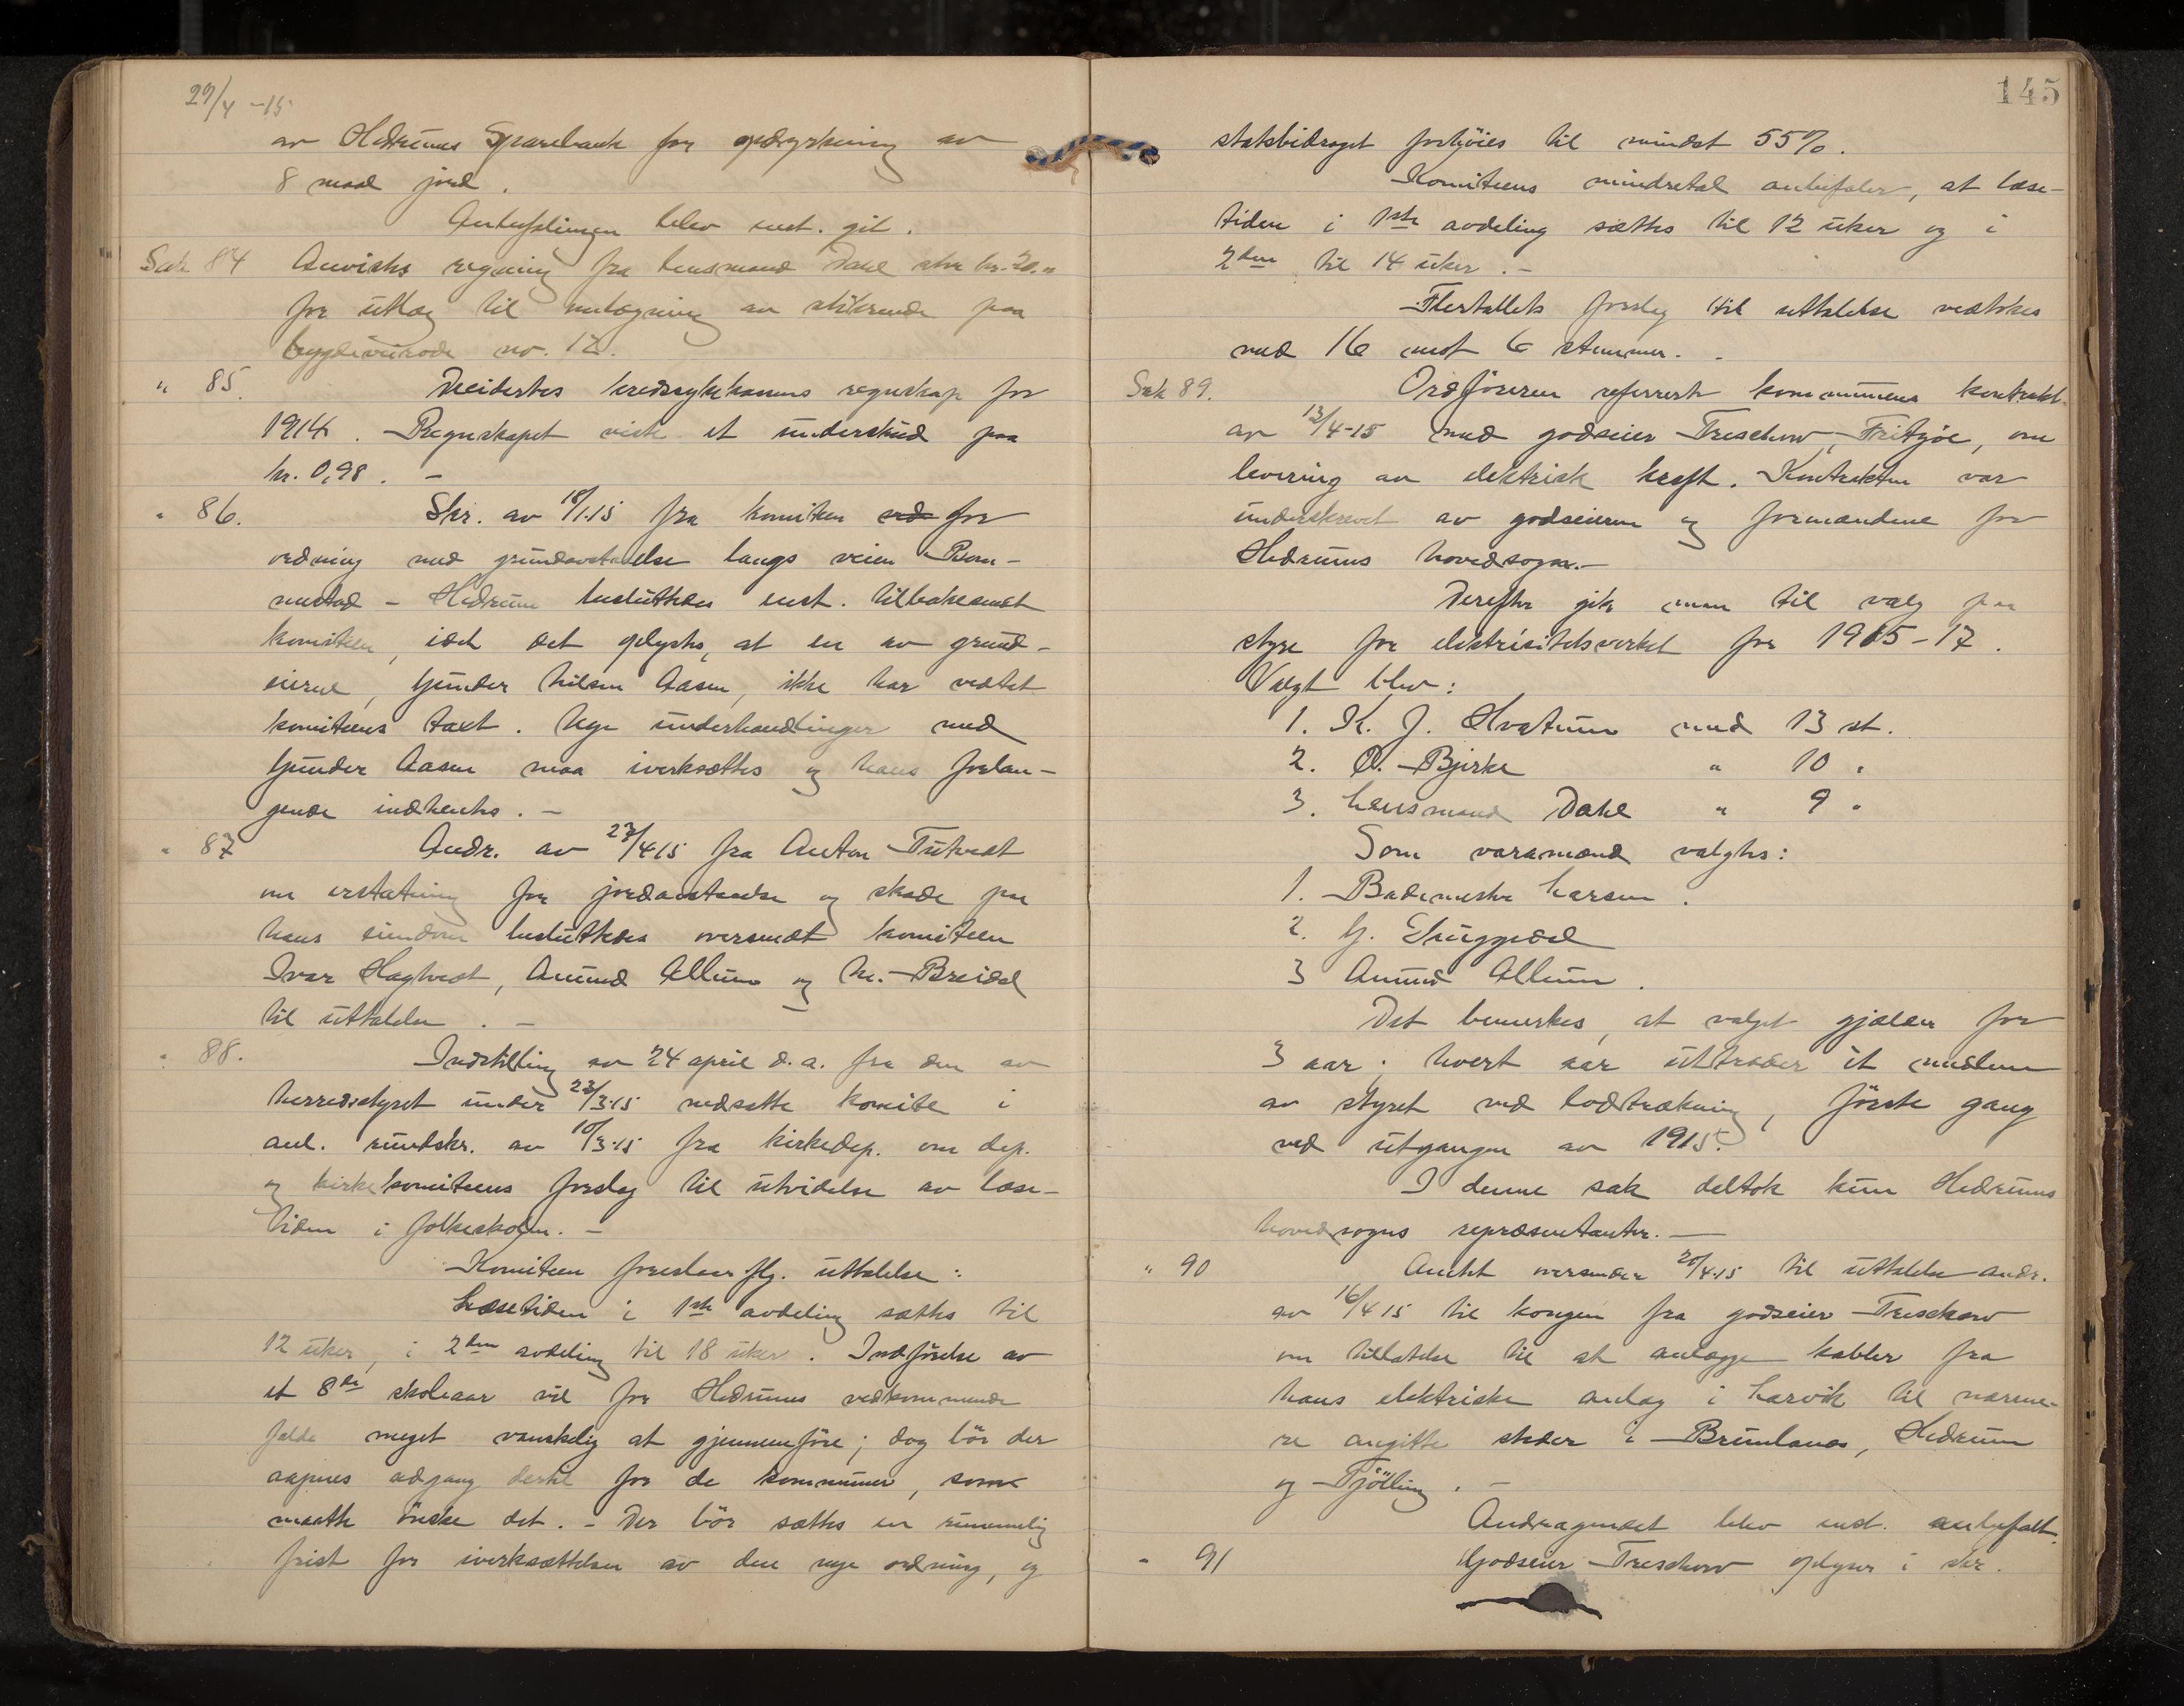 29/4 -15
av Hedrums Sparebank for opdyrkning av
8 maal jord.
Anbefalingen blev enst. git.
Sak 84 Anvistes regning fra lensmand Dahl stor kr. 20.
for utlæg til
bygdeveirode no. 12.
" 85. Decidertes kredssykekassens regnskap for
1914. Regnskapet viste et underskud paa
kr. 0,98. –
" 86. Skr. av 18/1.15 fra komiteen ved for
ordning med grundavstaaelse langs veien Bom-
mestad – Hedrum besluttedes enst. tilbakesendt
komiteen, idet det oplystes, at en av grund-
eierne, Gunder Nilsen Aasen, ikke har vedtat
komiteens taxt. Nye underhandlinger med
Gunder Aasen maa iverksættes og hans forlan-
gende indhentes. –
" 87 Andr. av 23/4 15 fra Anton Tutvedt
om erstatning for jordavstaaelse og skade paa
hans eiendom besluttedes oversendt komiteen
Ivar Hagtvedt, Anund Allum og M. Breidal
til uttalelse. –
" 88. Indstilling av 24 april d.a. fra den av
herredsstyret under 23/3.15 nedsatte komite i
anl. rundskr. av 10/3.15 fra kirkedep. om dep.
og kirkekomiteens forslag til utvidelse av læse-
tiden i folkeskolen. –
Komiteen foreslaar flg. uttalelse:
Læsetiden i 1ste avdeling sættes til
12 uker, i 2den avdeling til 18 uker. Indførelse av
et 8de skoleaar vil for Hedrums vedkommende
falde meget vanskelig at gjennemføre; dog bör der
aapnes adgang dertil for de kommuner, som
maatte önske det. – Der bör sættes en rimmelig
frist for iverksættelsen av den nye ordning, og
145
statsbidraget forhöies til mindst 55%.
Komiteens mindretal anbefaler, at læse-
tiden i 1ste avdeling sættes til 12 uker og i
2den til 14 uker. –
Flertallets forslag til uttalelse vedtokes
med 16 mot 6 stemmer. –
Sak 89. Ordföreren refererte kommunens kontrakt
av 13/4-15 med godseier Treschow, Fritzöe, om
levering av elektrisk kraft. Kontrakten var
underskrevet av godseieren og formændene for
Hedrums hovedsogn. –
Derefter gik man til valg paa
styre for elektrisitetsverket for 1915-17.
Valgt blev:
1. K. J. Hvatum med 13 st.
2. O. Bjerke " 10 "
3. Lensmand Dahl " 9 "
Som varamænd valgtes:
1. Bademester Larsen.
2. G. Skuggedal
3 Anund Allum.
Det bemerkes, at valget gjælder for
3 aar; hvert aar uttræder et medlem
av styret ved lodtrækning, förste gang
ved utgangen av 1915.
I denne sak deltok kun Hedrums
hovedsogns repræsentanter. –
" 90 Amtet oversender 20/4.15 til uttalelse andr.
av 16/4 15 til kongen fra godseier Treschow
om tillatelse til at anlægge kabler fra
hans elektriske anlæg i Larvik til nærme-
re angitte steder i Brunlanes, Hedrum
og Tjölling. –
Andragendet blev enst. anbefalt.
" 91 Godseier Treschow oplyser i skr.